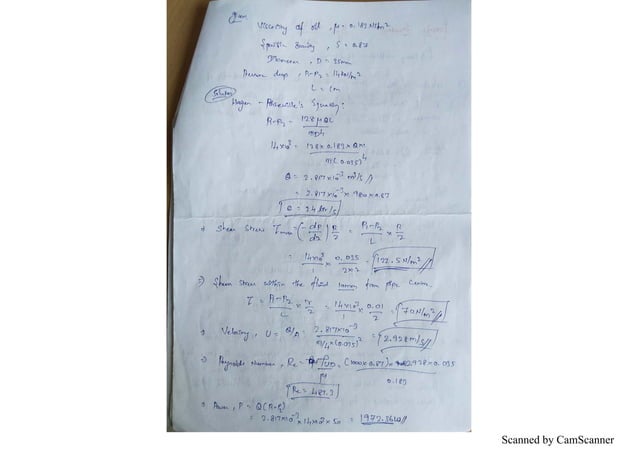 Viscosity of oil, μ = 0.189 NS/m²
Specific Gravity, S = 0.87
Diameter, D = 35mm
Pressure drop, P₁-P₂ = 14 kN/m²
L = 1m
Solution
Hagen - Equation:
P₁-P₂ = 128μQL
πD⁴
14×10³ = 128×0.189×Q×1
π(0.035)⁴
Q = 2.817×10⁻³ m³/s
= 2.817×10⁻³ × 980×0.87
Shear stress τ = (-dP/dx) R/2 = P₁-P₂/L × R/2
= 14×10³/1 × 0.035/2×2 = 122.5 N/m²
Shear stress within the fluid from pipe Centre.
τ = P₁-P₂/L × r/2 = 14×10³/1 × 0.01/2 = 70 N/m²
Velocity, U = Q/A = 2.817×10⁻³/π/4×(0.035)² = 2.928 m/s
Reynolds Number, Re = (1000×0.87)× 2.928×0.035
0.189
Power, P = Q(P₁-P₂)
= 2.817×10⁻³×14×10³×50 =
Scanned by CamScanner